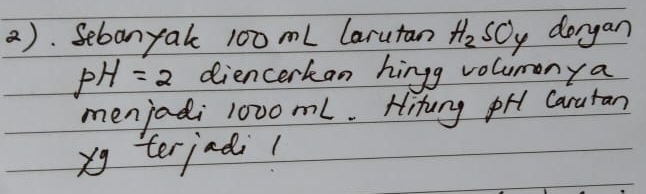 2). Sebanyak 100 mL larutan H₂SO₄ dengan
pH = 2 diencerkan hingg volumenya
menjadi 1000 mL. Hitung pH larutan
yg terjadi !